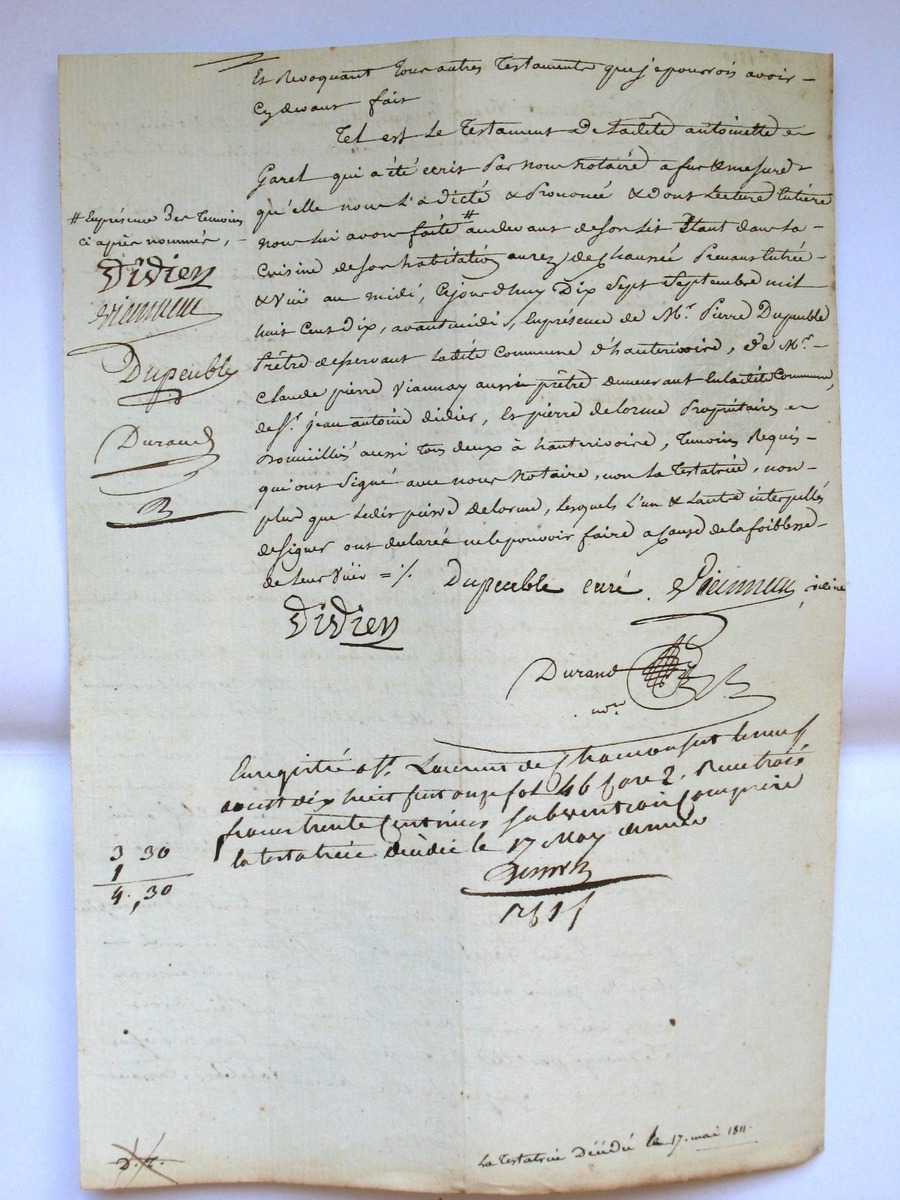 Et Revoquant Tous autres Testaments que je pourrois avoir -
Cy devant fait
Tel est le Testament de ladite antoinette
Garel qui a été ecrit Par nous notaire a fur & mesure
qu'elle nous l'a dicté & Prononcé & dont Lecture Entière
nous lui avons faite # audevant de son Lit Etant dans la -
cuisine de son habitation au rez de chaussée Prenant Entrée -
& vüe au midi, Cejourd'huy Dix Sept Septembre mil
huit Cent Dix, avant midi, En présence de Mr. Pierre Dupeuble
Prêtre desservant ladite Commune d'hauterivoire, de Mr. -
Claude pierre Viannay aussi prêtre demeurant En ladite Commune,
de Sr. jean antoine didier, Et pierre delorme Propriétaires
Domiciliés aussi tous deux à hauterivoire, Temoins Requis -
qui ont Signé avec nous Notaire, non la Testatrice, non -
plus que ledit pierre delorme, Lesquels L'un & L'autre interpellés
de signer ont declaré ne le pouvoir faire a Cause de la foiblesse -
de leur vüe =/.
Dupeuble curé
DiDien
Durand
nore
# En présence des Temoins
ci après nommés, -
DiDien
Dupeuble
Durand
Enregistré à St. Laurent de Chamousset le neuf
aoust dix huit cent onze fol 46 Case 2. Reçu trois
francs trente Centimes Subvention Comprise
la testatrice décédée le 17 May dernier
3 30
1
4,30
La Testatrice Décédée le 17. mai 1811.